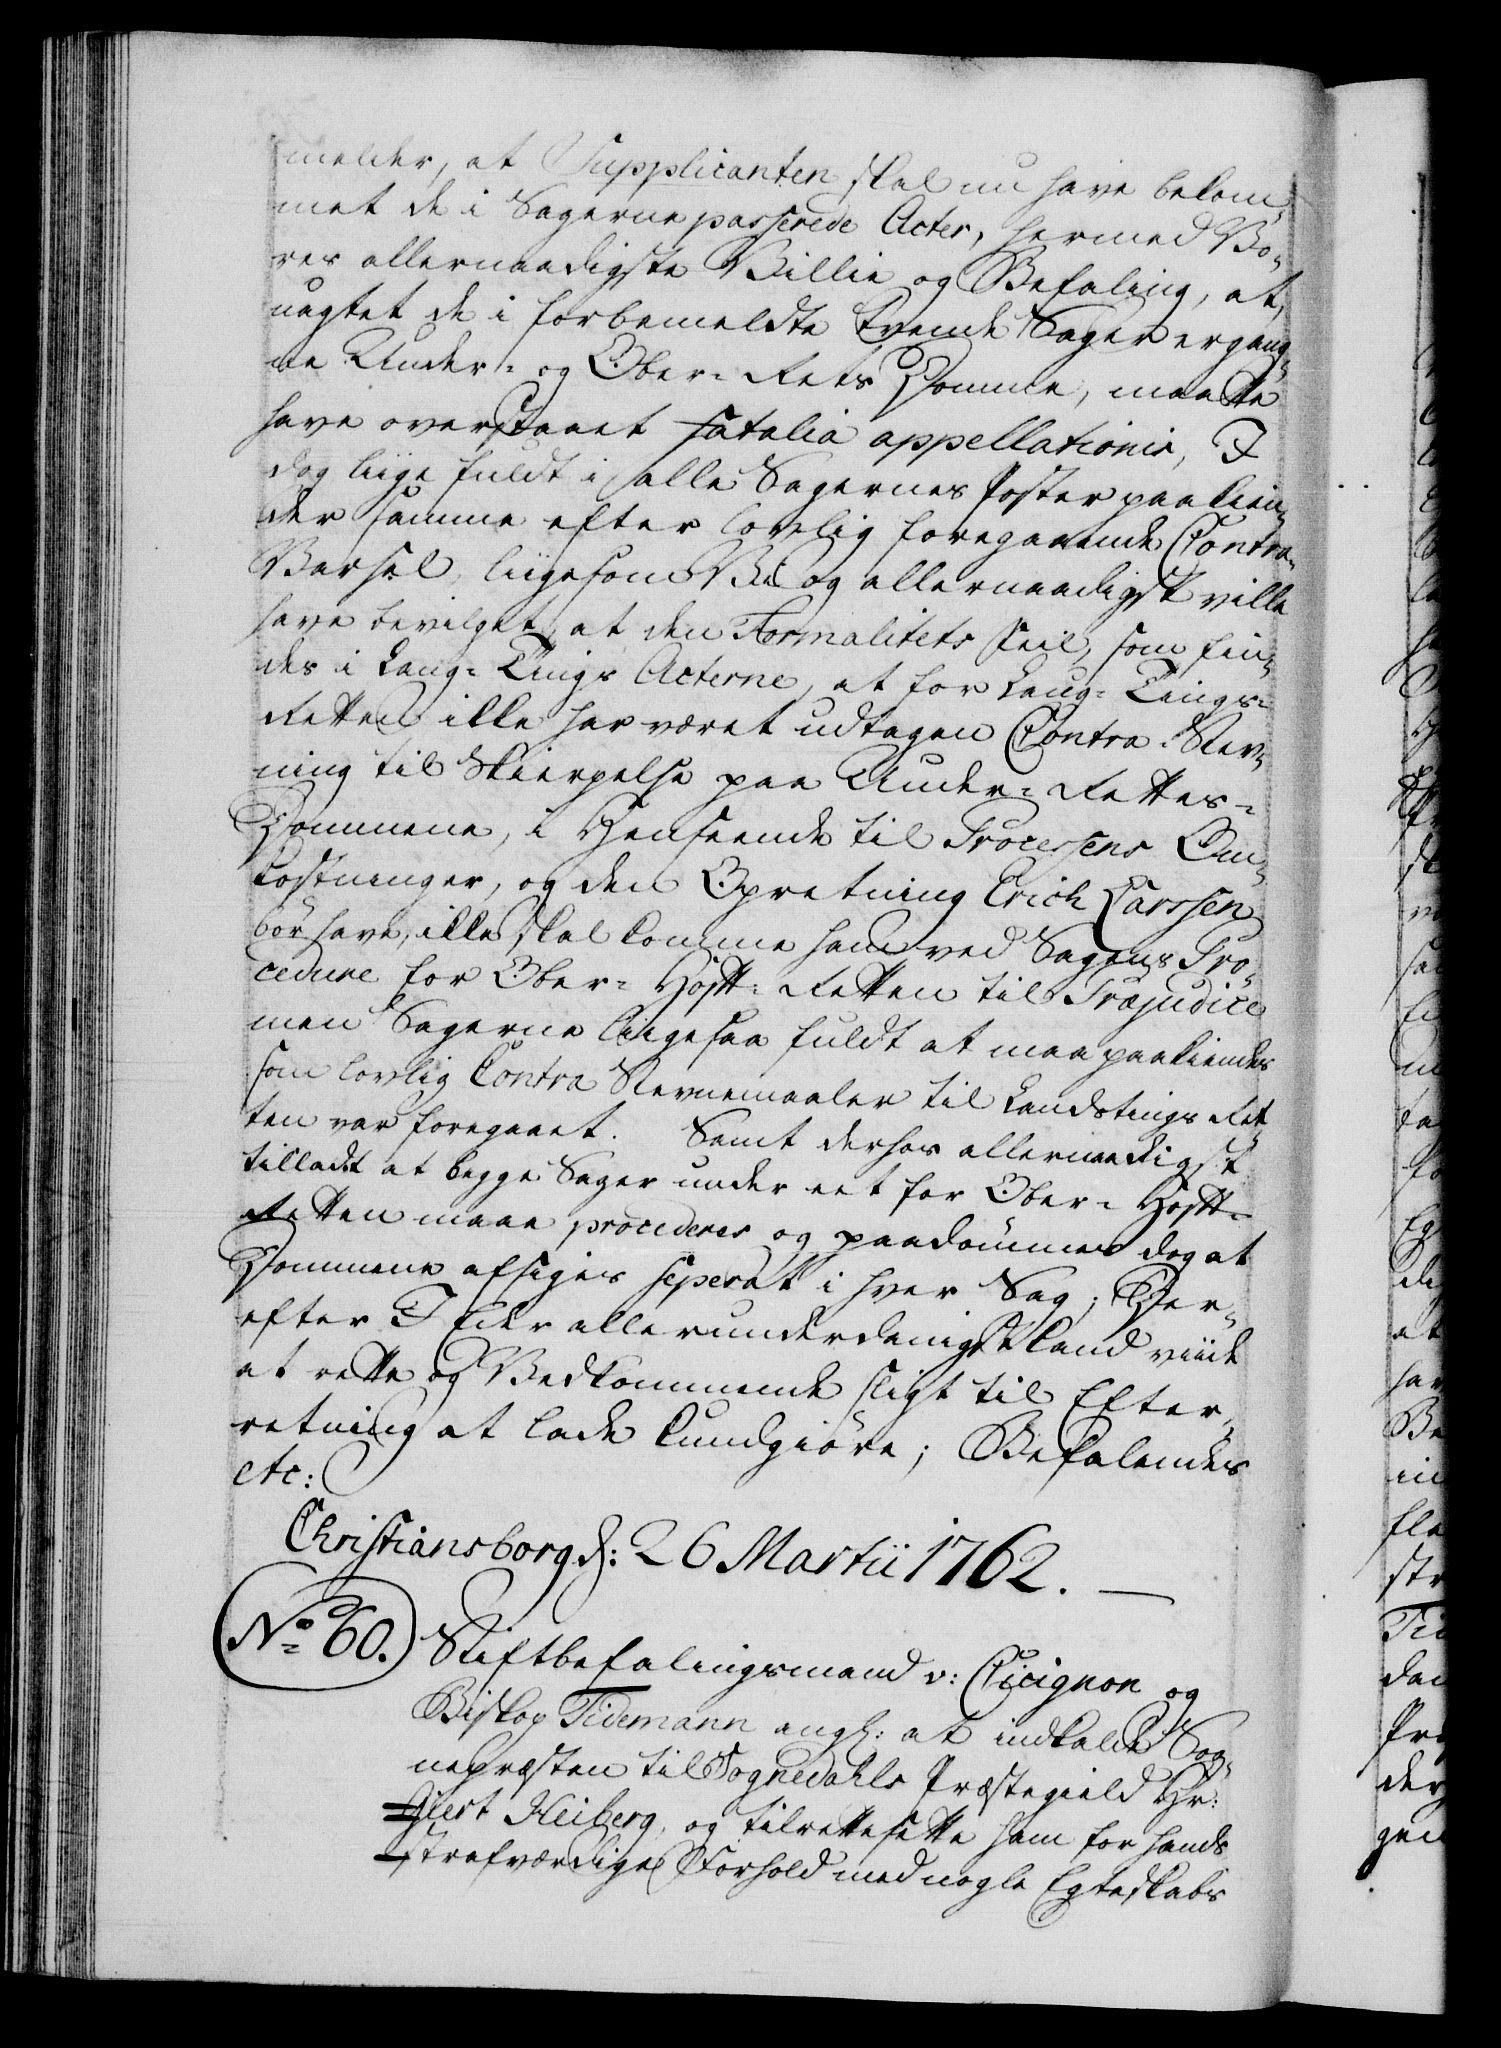 melder, at Supplicanten skal nu have bekom-
met de i Sagerne passerede Acter, hermed Vo-
res allernaadigste Villie og Befaling, at,
uagtet de i forbemeldte tvende Sager ergang-
ne Under- og Ober-Rets Domme, maatte
have overstaaet fatalia appellationis, I
dog liige fuldt i alle Sagernes Poster paakien-
der samme efter lovlig foregaaende Contra-
Varsel, liigesom Vi og allernaadigst ville
have bevilget, at den Formalitets Feil, som fin-
des i Laug-Tings Acterne, at for Laug-Tings-
Retten ikke har været udtagen Contra-Stev-
ning til Skierpelse paa Under-Rettes-
Dommene, i Henseende til Processens Om-
kostninger, og den Opretning Erich Larssen
bör have, ikke skal komme ham ved Sagens Pro-
cedure for Ober-Hoff-Retten til Præjudice
men Sagerne liigesaa fuldt at maa paakiendes
som lovlig Contra Stevnemaaler til Landstings Ret-
ten var foregaaet. Samt derhos allernaadigst
tilladt at begge Sager under eet for Ober-Hoff-
Retten maae procederes og paadömmes dog at
Dommene afsiges seperat i hver Sag; Der-
efter I Eder allerunderdanigst haver
at rette og Vedkommende sligt til Efter-
retning at lade kundgiöre; Befalendes
etc:
Christiansborg d: 26 Martii 1762.
No 60. Stiftbefalingsmand v: Cicignon og
Biskop Tidemann angl: at indkalde Sog-
nepræsten til Sognedahls Præstegield Hr:
Gert Heiberg, og tilrettesette ham for hands
strafværdige Forhold med nogle Egteskabs